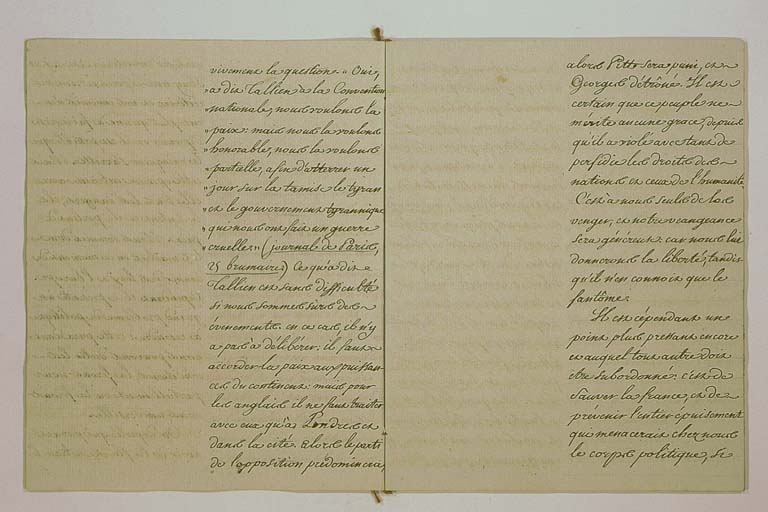 vivement la question. « Oui,
« a dit Tallien à la Convention
« nationale, nous voulons la
« paix: mais nous la voulons
« honorable, nous la voulons
« partielle, afin d'atterrer un
« jour sur la tamise le tyran
« et le gouvernement tyrannique
« que nous ont fait un guerre
cruelle » (journal de Paris,
25 brumaire) Ce qu'a dit
Tallien est sans difficulté
si nous sommes sûrs des
événements. en ce cas, il n'y
a pas à délibérer: il faut
accorder la paix aux puissan-
ces du continent: mais pour
les anglais il ne faut traiter
avec eux qu'à Londres et
dans la cité. Alors le parti
de l'opposition prédominera,
alors Pitt sera puni, et
Georges détrôné. Il est
certain que ce peuple ne
mérite aucune grace, depuis
qu'il a violé avec tant de
perfidie les droits des
nations et ceux de l'humanité.
C'est a nous seuls de les
venger, et notre vengeance
sera généreuse: car nous lui
donnerons la liberté, tandis
qu'il n'en connoit que le
fantôme.
Il est cépendant un
point plus pressant encore
et auquel tout autre doit
être subordonné: c'est de
sauver la france, et de
prévenir l'entier épuisement
qui menacerait chez nous
le corps politique, si